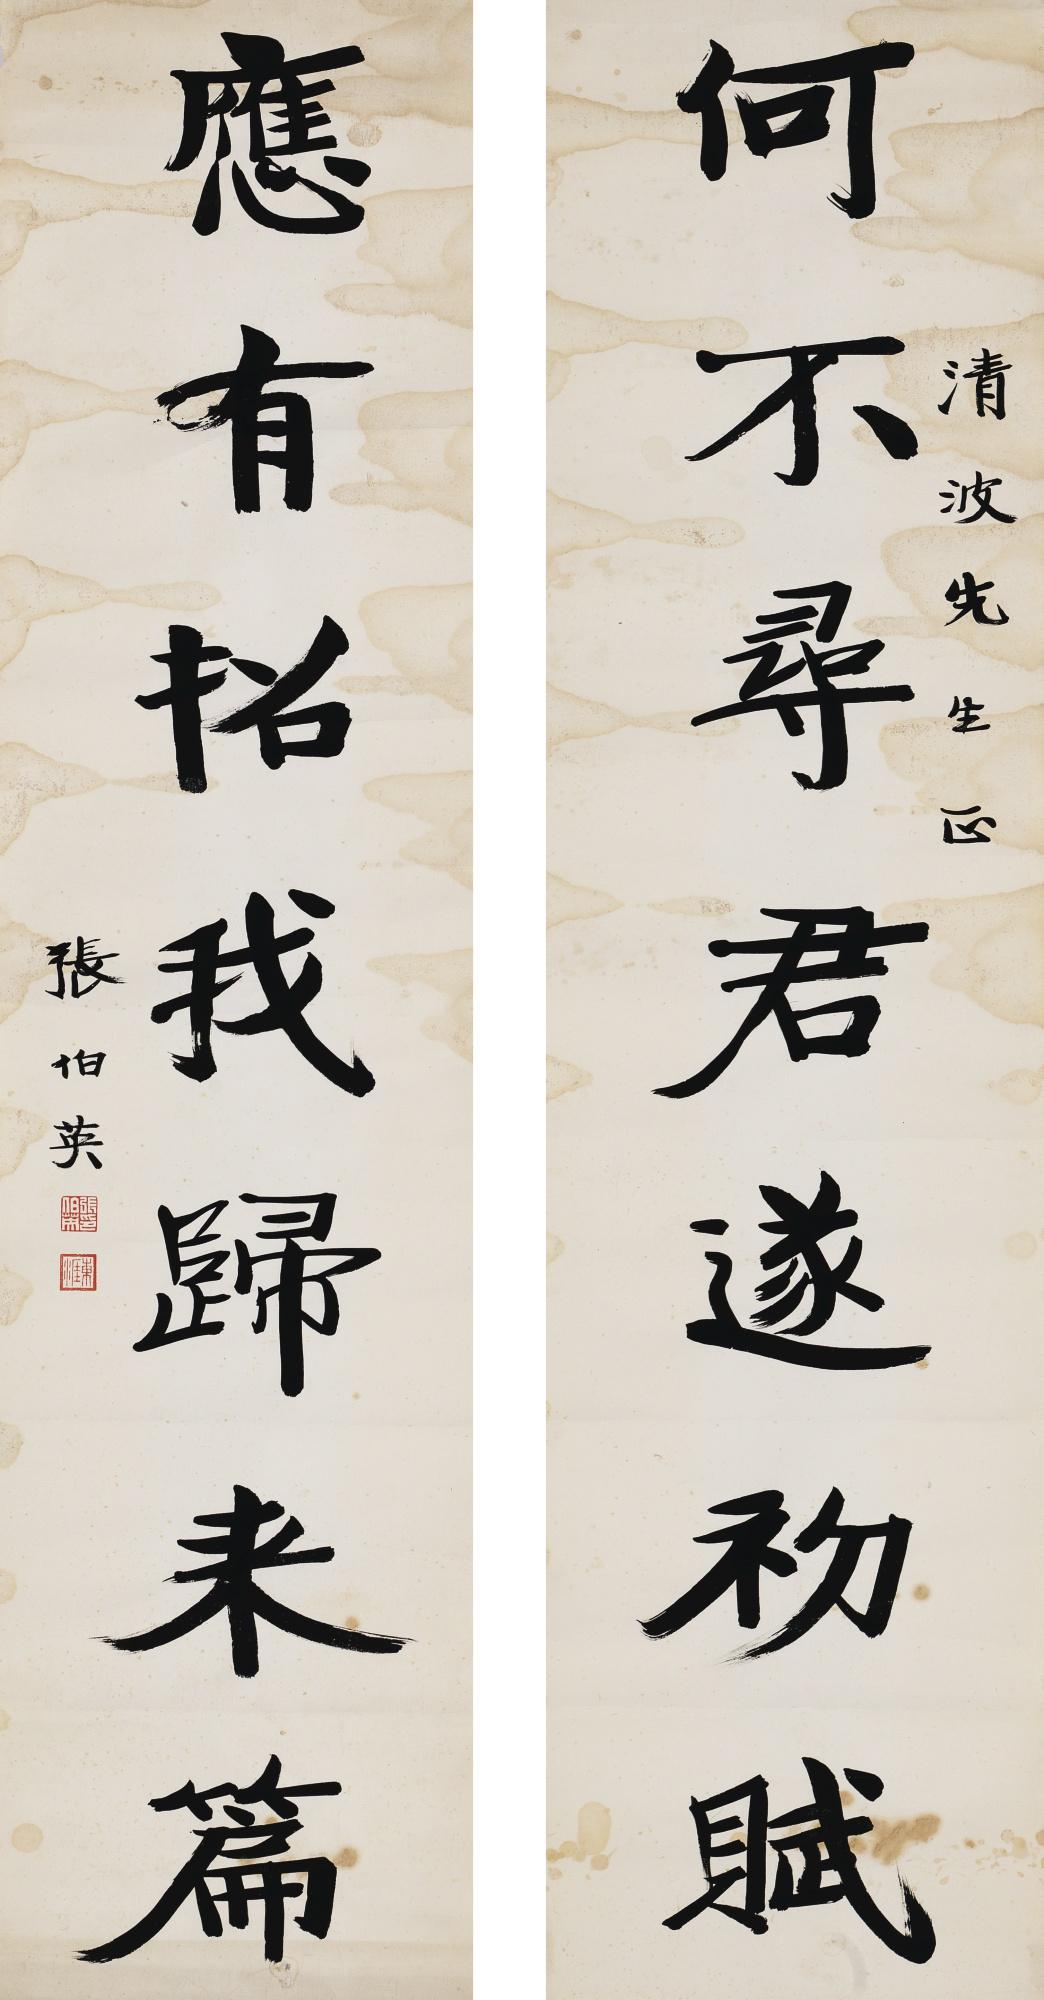 清波先生正
何不尋君遂初賦
應有招我歸来篇
張伯英